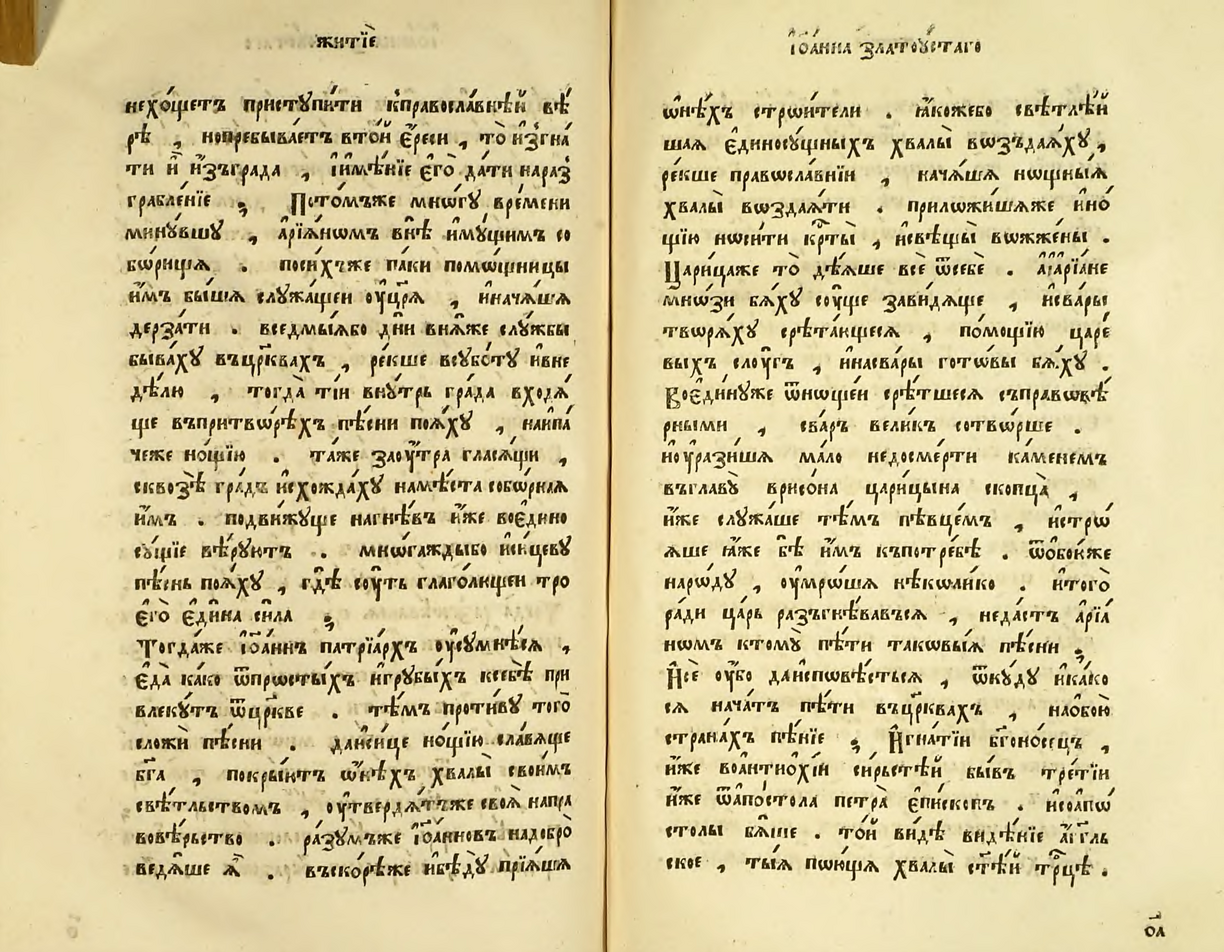 житїѐ
нехо́щетъ пристꙋпи́ти к̾правосла́внѣй вѣ́
рѣ , нопребыва́етъ вто́й є҆́реси , то̀ и҆згна́
ти и҆̀ и҆зъграда , і҆имѣ́нїе є҆го̀ да́ти нараз̾
грабле́нїе ; Пѡто́мъже мно́гꙋ вре́мени
минꙋ́вшꙋ , а҆рїѧ́нѡмъ внѣ̀ и҆мꙋ́щимъ со
бѡ́рища . посихъже па́ки помѡщницы
и҆̀мъ бы́шѧ слꙋжа́щеи ᲂу҆црѧ̀ , и҆нача́шѧ
дерза́ти . вседмы́ѧбо дни̑ вни́ѧже слꙋ́жбы
быва́хꙋ въцр҃квахъ , ре́кше всꙋбо́тꙋ и҆вне
дѣ́лю , тогда̀ ті́и внꙋ́трь гра́да входѧ́
ще въпритво́рѣхъ пѣ́сни поѧ́хꙋ , наипа́
чеже но́щїю . та́же заᲂу́тра глася́щи ,
сквозѣ̀ гра́дъ и҆схожда́хꙋ намѣ́ста собѡ́рнаѧ
и҆̀мъ . подви́жꙋще нагнѣ́въ и҆̀же воє҆ди́но
сꙋ́щїе вѣ́рꙋютъ . мнѡгаждыбо и҆си́цевꙋ
пѣ́снь поѧ́хꙋ , гдѣ̀ сꙋ́ть глаго́лющеи тро
є҆го̀ є҆ди́на си́ла ;
Тогда́же і҆ѡа́ннъ патрїа́рхъ ᲂу҆сꙋмнѣ́сѧ ,
є҆да̀ ка́ко ѿпрѡсты́хъ и҆грꙋ́быхъ ксебѣ̀ при
влекꙋ́тъ ѿцр҃кве . тѣ́мъ проти́вꙋ того̀
сложѝ пѣ́сни . даи҆си́це но́щїю сла́вѧще
бг҃а , покры́ютъ ѡ҆нѣ́хъ хвалы̀ свои́мъ
свѣ́тльствомъ , ᲂу҆твердѧ́тъже своѧ̀ напра
вовѣ́рьство . ра́зꙋмъже і҆ѡа́нновъ надобро̀
ведѧ́ше ѧ҆̀ . въско́рѣже и҆бѣдꙋ̀ прїѧ́шѧ
І҆ѡа́нна златоꙋ́стаго
ѡ҆нѣ́хъ стрѡи́тели . ꙗ҆́кожебо свѣтлѣ́й
шаѧ є҆диносꙋ́щныхъ хвалы̀ вѡздаѧ́хꙋ ,
ре́кше правѡсла́внїи , нача́шѧ нѡщны́ѧ
хвалы̀ вѡздаѧ́ти . прилѡжи́шѧже и҆но́
щїю нѡси́ти крⷭ҇ты̀ , и҆свѣщы̀ вѡжже́ны .
Цари́цаже то̀ дѣ́ѧше всѐ ѿсебѐ . а҆а҆рїа́не
мнѡ́зи бѧ́хꙋ сꙋ́ще зави́дѧще , и҆сва́ры
творѧ́хꙋ срѣта́ющесѧ , по́мощїю царе́
выхъ слꙋ́гъ , и҆насва́ры гото́вы бѧ́хꙋ .
Воє҆ди́нꙋже ѿно́щеи срѣ́тшесѧ съправовѣ́
рными , сва́ръ вели́къ сотвѡ́рше .
и҆ᲂу҆рази́шѧ ма́ло недосме́рти ка́менемъ
въглавꙋ̀ врисо́на , цари́цына скопца̀ ,
и҆̀же слꙋжа́ше тѣ́мъ пѣвце́мъ , и҆стрѡ́
ѧше ꙗ҆́же бѣ̀ и҆̀мъ къпотре́бѣ . ѿѻбои́хже
наро́дꙋ , ᲂу҆мрѡ́шѧ нѣ́колико . и҆того̀
ра́ди ца́рь разъгнѣ́вавъсѧ , неда́стъ а҆рїа́
нѡмъ ктомꙋ̀ пѣ́ти такѡвы́ѧ пѣ́сни ;
И҆сѐ ᲂу҆́бо даи҆сповѣ́стьсѧ , ѿкꙋ́дꙋ и҆ка́ко
сѧ нача́тъ пѣ́ти въцр҃квахъ , наѻбо́ю
страна́хъ пѣ́нїе ; И҆гна́тїи бг҃оно́сецъ ,
и҆́же воа҆нтиохі́и си́рьстѣй бы́въ тре́тїи
и҆́же ѿа҆по́стола петра̀ є҆пи́скопъ . и҆соа҆пѡ́
столы бѧ́ше . то́й ви́дѣ видѣ́нїе а҆́гг҃ль
ское , ты́ѧ пою́щїѧ хвалы̀ ст҃ѣ́й трⷪ҇цѣ .
ѻл